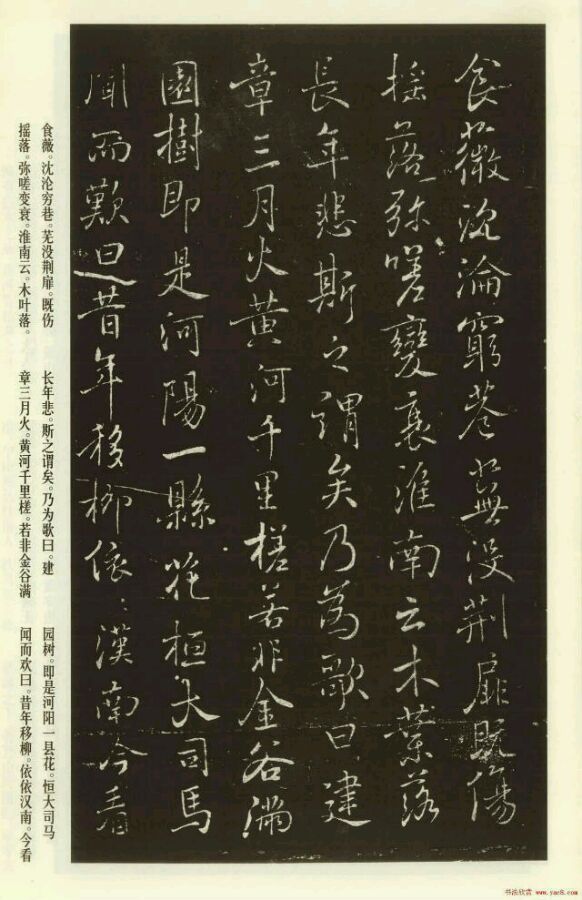 食薇沈淪窮巷蕪没荊扉既傷
搖落弥嗟變衰淮南云木葉落
長年悲斯之謂矣乃為歌曰建
章三月火黃河千里槎若非金谷滿
園樹即是河陽一縣花桓大司馬
聞而歎曰昔年移柳依〻漢南今看
食薇。沈沦穷巷。芜没荆扉。既伤
摇落。弥嗟变衰。淮南云。木叶落。
长年悲。斯之谓矣。乃为歌曰。建
章三月火。黄河千里槎。若非金谷满
园树。即是河阳一县花。恒大司马
闻而欢曰。昔年移柳。依依汉南。今看
书法欣赏 www.yac8.com